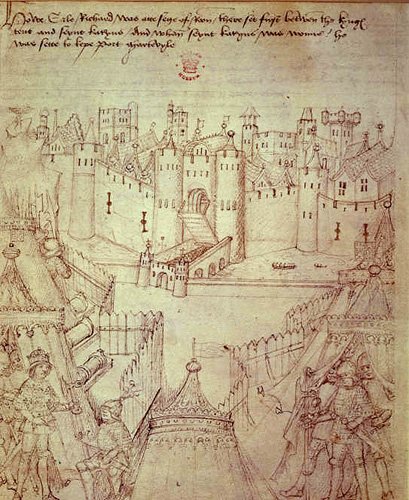 Howe Erle Richard was atte sege of Roon, there set furst betwen the kyngs
tent and seynt katryns And whan seynt katryns was wonne / he
was sette to kepe Port martevyle